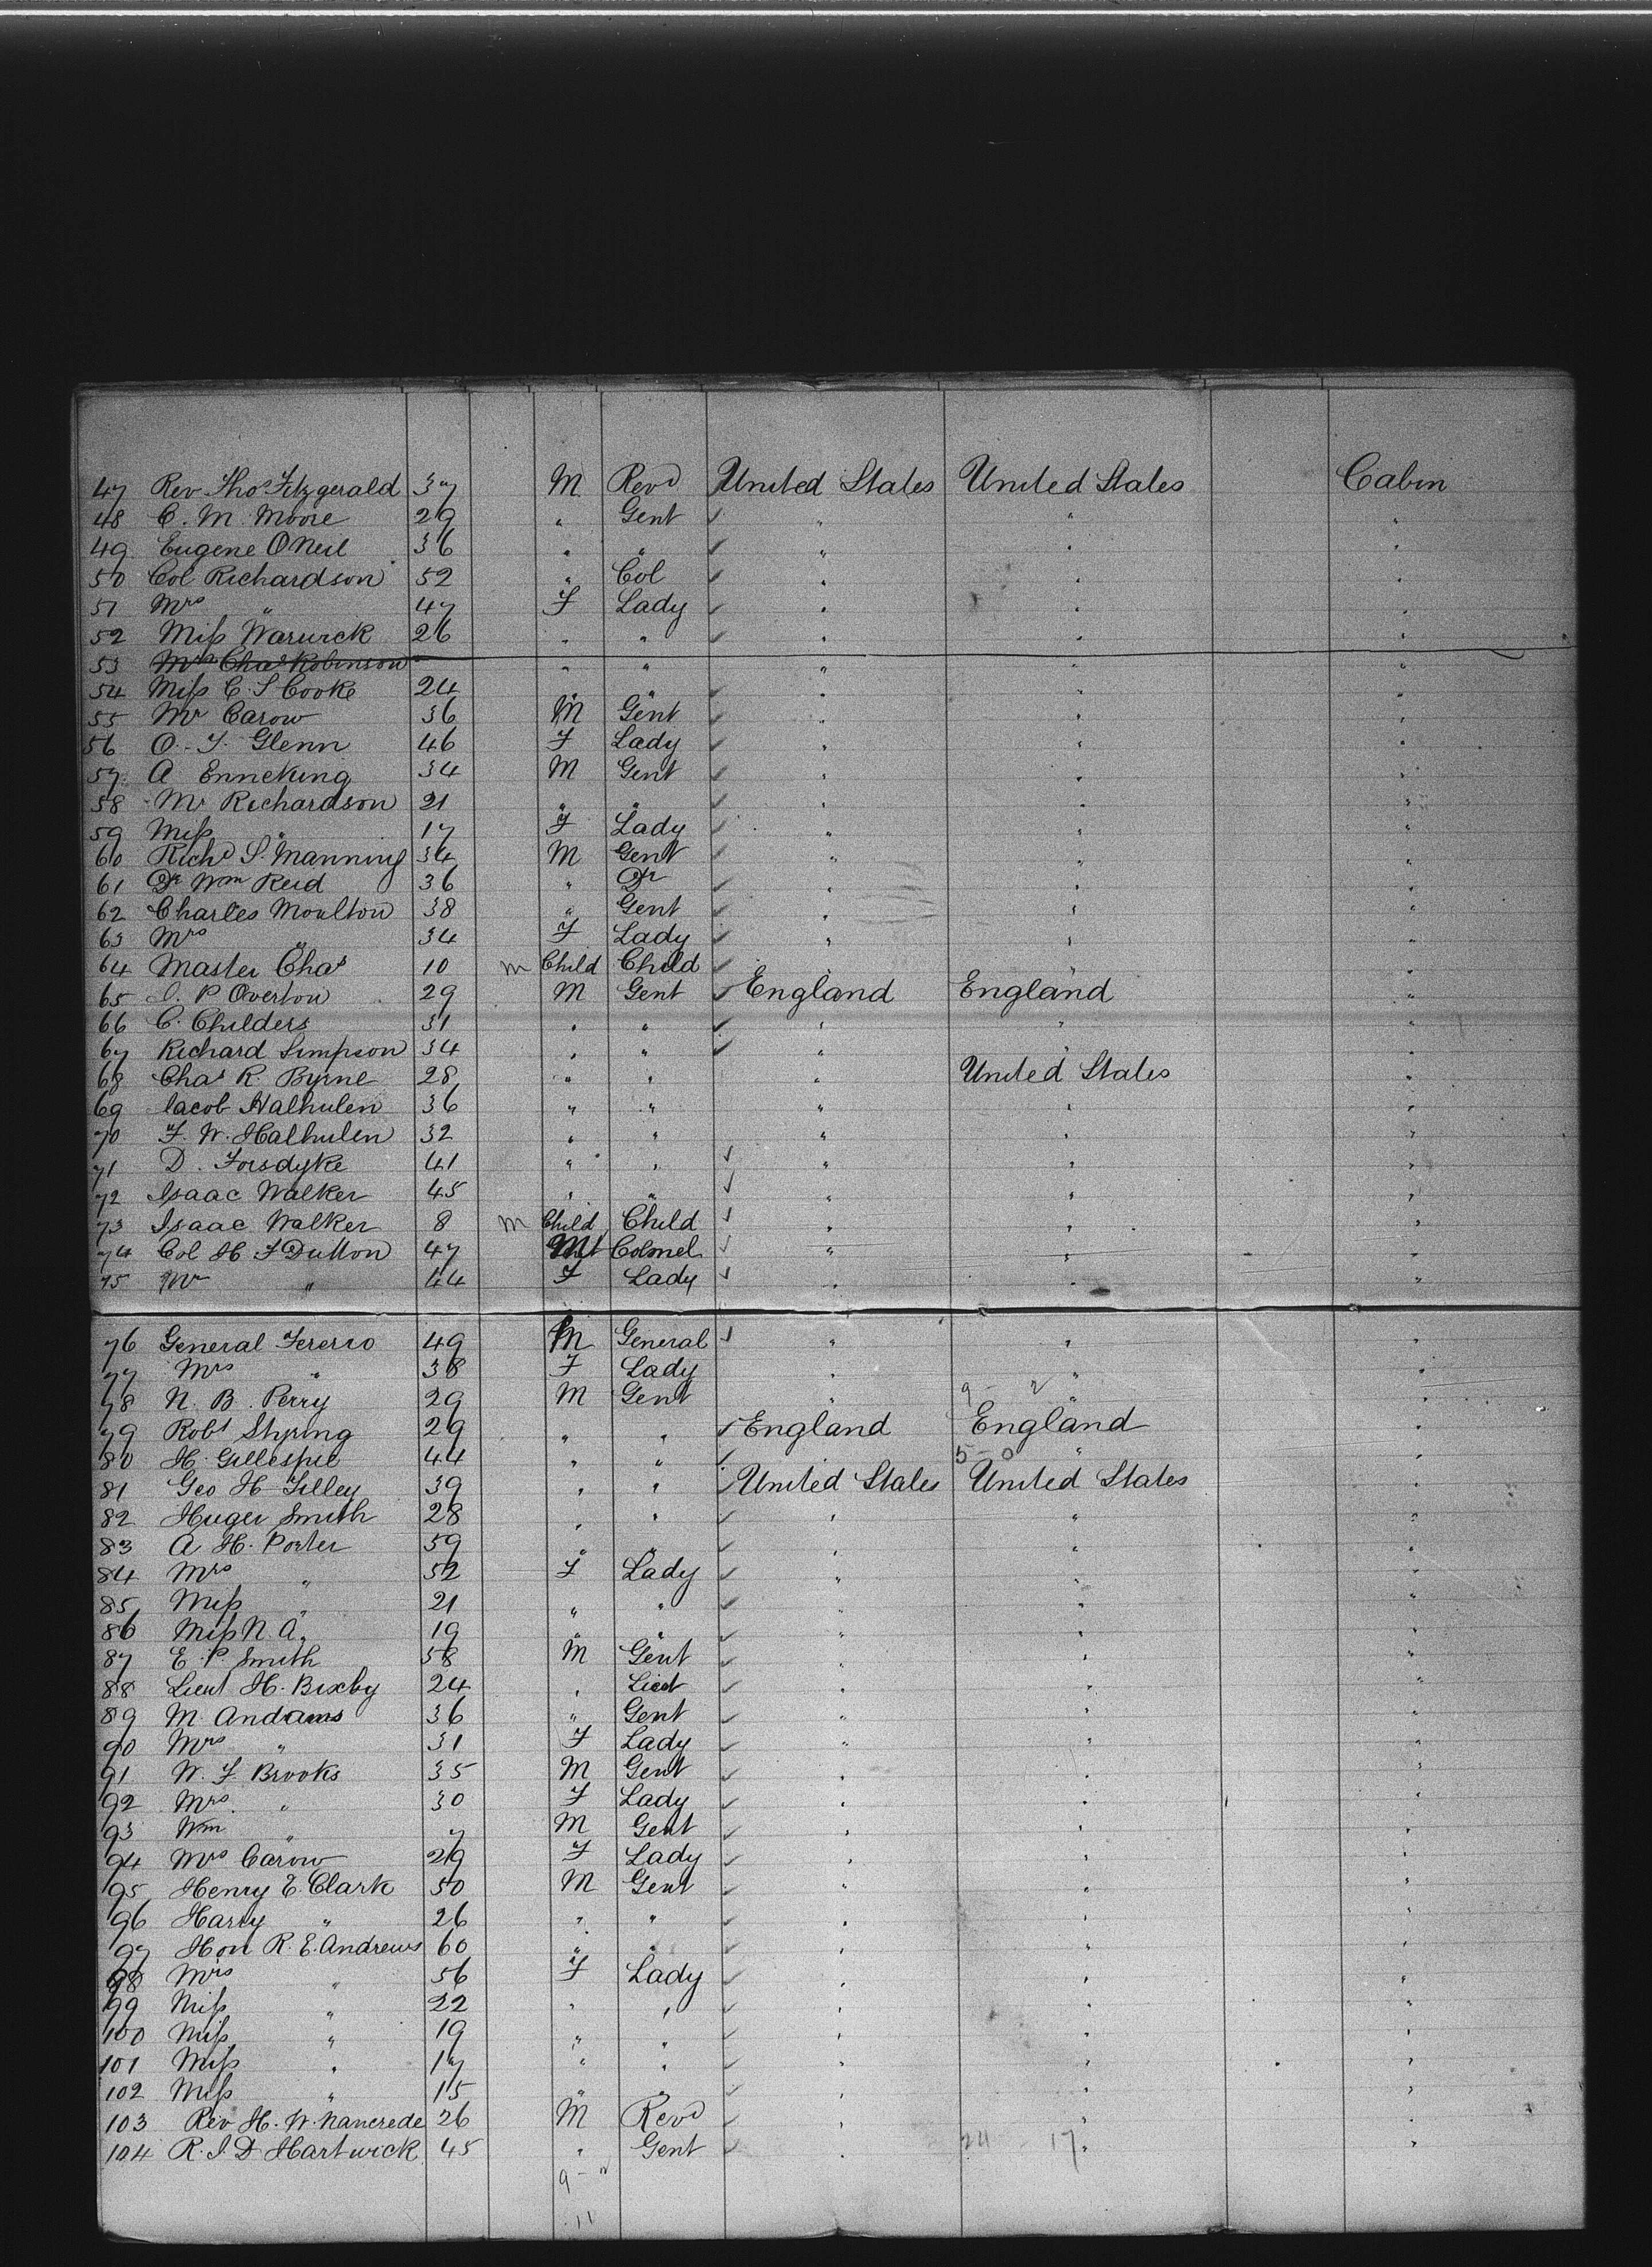 47 Rev Thos Fitzgerald 37 M Revd United States United States Cabin
48 C. M. Moore 29 " Gent " " "
49 Eugene O Neil 36 " " " " "
50 Col Richardson 52 " Col " " "
51 Mrs " 47 F Lady " " "
52 Miss Warwick 26 " " " " "
53 Mrs Chas Robinson " " " " "
54 Miss C. S Cooke 24 " " " " "
55 Mr Carow 36 M Gent " " "
56 O. F. Glenn 46 F Lady " " "
57 A Enneking 34 M Gent " " "
58 Mr Richardson 21 " " " " "
59 Miss " 17 F Lady " " "
60 Richd S. Manning 34 M Gent " " "
61 Dr Wm Reid 36 " Dr " " "
62 Charles Moulton 38 " Gent " " "
63 Mrs " 34 F Lady " " "
64 Master Chas " 10 m Child Child " " "
65 P Overton 29 M Gent England England "
66 C. Childers 31 " " " " "
67 Richard Simpson 34 " " " " "
68 Chas R. Byrne 28 " " " United States "
69 Jacob Halhulen 36 " " " " "
70 F. W. Halhulen 32 " " " " "
71 D. Forsdyke 41 " " " " "
72 Isaac Walker 45 " " " " "
73 Isaac Walker 8 m Child Child " " "
74 Col H F Dutton 47 M Colonel " " "
75 Mr " 44 F Lady " " "
76 General Fererro 49 M General " " "
77 Mrs " 38 F Lady " " "
78 N. B. Perry 29 M Gent " 9 - 2 " "
79 Robt Styring 29 " " England England "
80 H. Gillespie 44 " " " 5 - 0 " "
81 Geo H Tilley 39 " " United States United States "
82 Huger Smith 28 " " " " "
83 A H. Porter 59 " " " " "
84 Mrs " 52 F Lady " " "
85 Miss " 21 " " " " "
86 Miss N. A. 19 " " " " "
87 E. P. Smith 58 M Gent " " "
88 Lieut H. Bixby 24 " Lieut " " "
89 M. Andams 36 " Gent " " "
90 Mrs " 31 F Lady " " "
91 W. F. Brooks 35 M Gent " " "
92 Mrs " 30 F Lady " " "
93 Wm " 7 M Gent " " "
94 Mrs Carow 29 F Lady " " "
95 Henry E. Clark 50 M Gent " " "
96 Harry " 26 " " " " "
97 Hon R. E. Andrews 60 " " " " "
98 Mrs " 56 F Lady " " "
99 Miss " 22 " " " " "
100 Miss " 19 " " " " "
101 Miss " 17 " " " " "
102 Miss " 15 " " " " "
103 Rev H. W. Nancrede 26 M Revd " " "
104 R. I. D Hartwick 45 " Gent " 24 17 " "
9 - 2
11